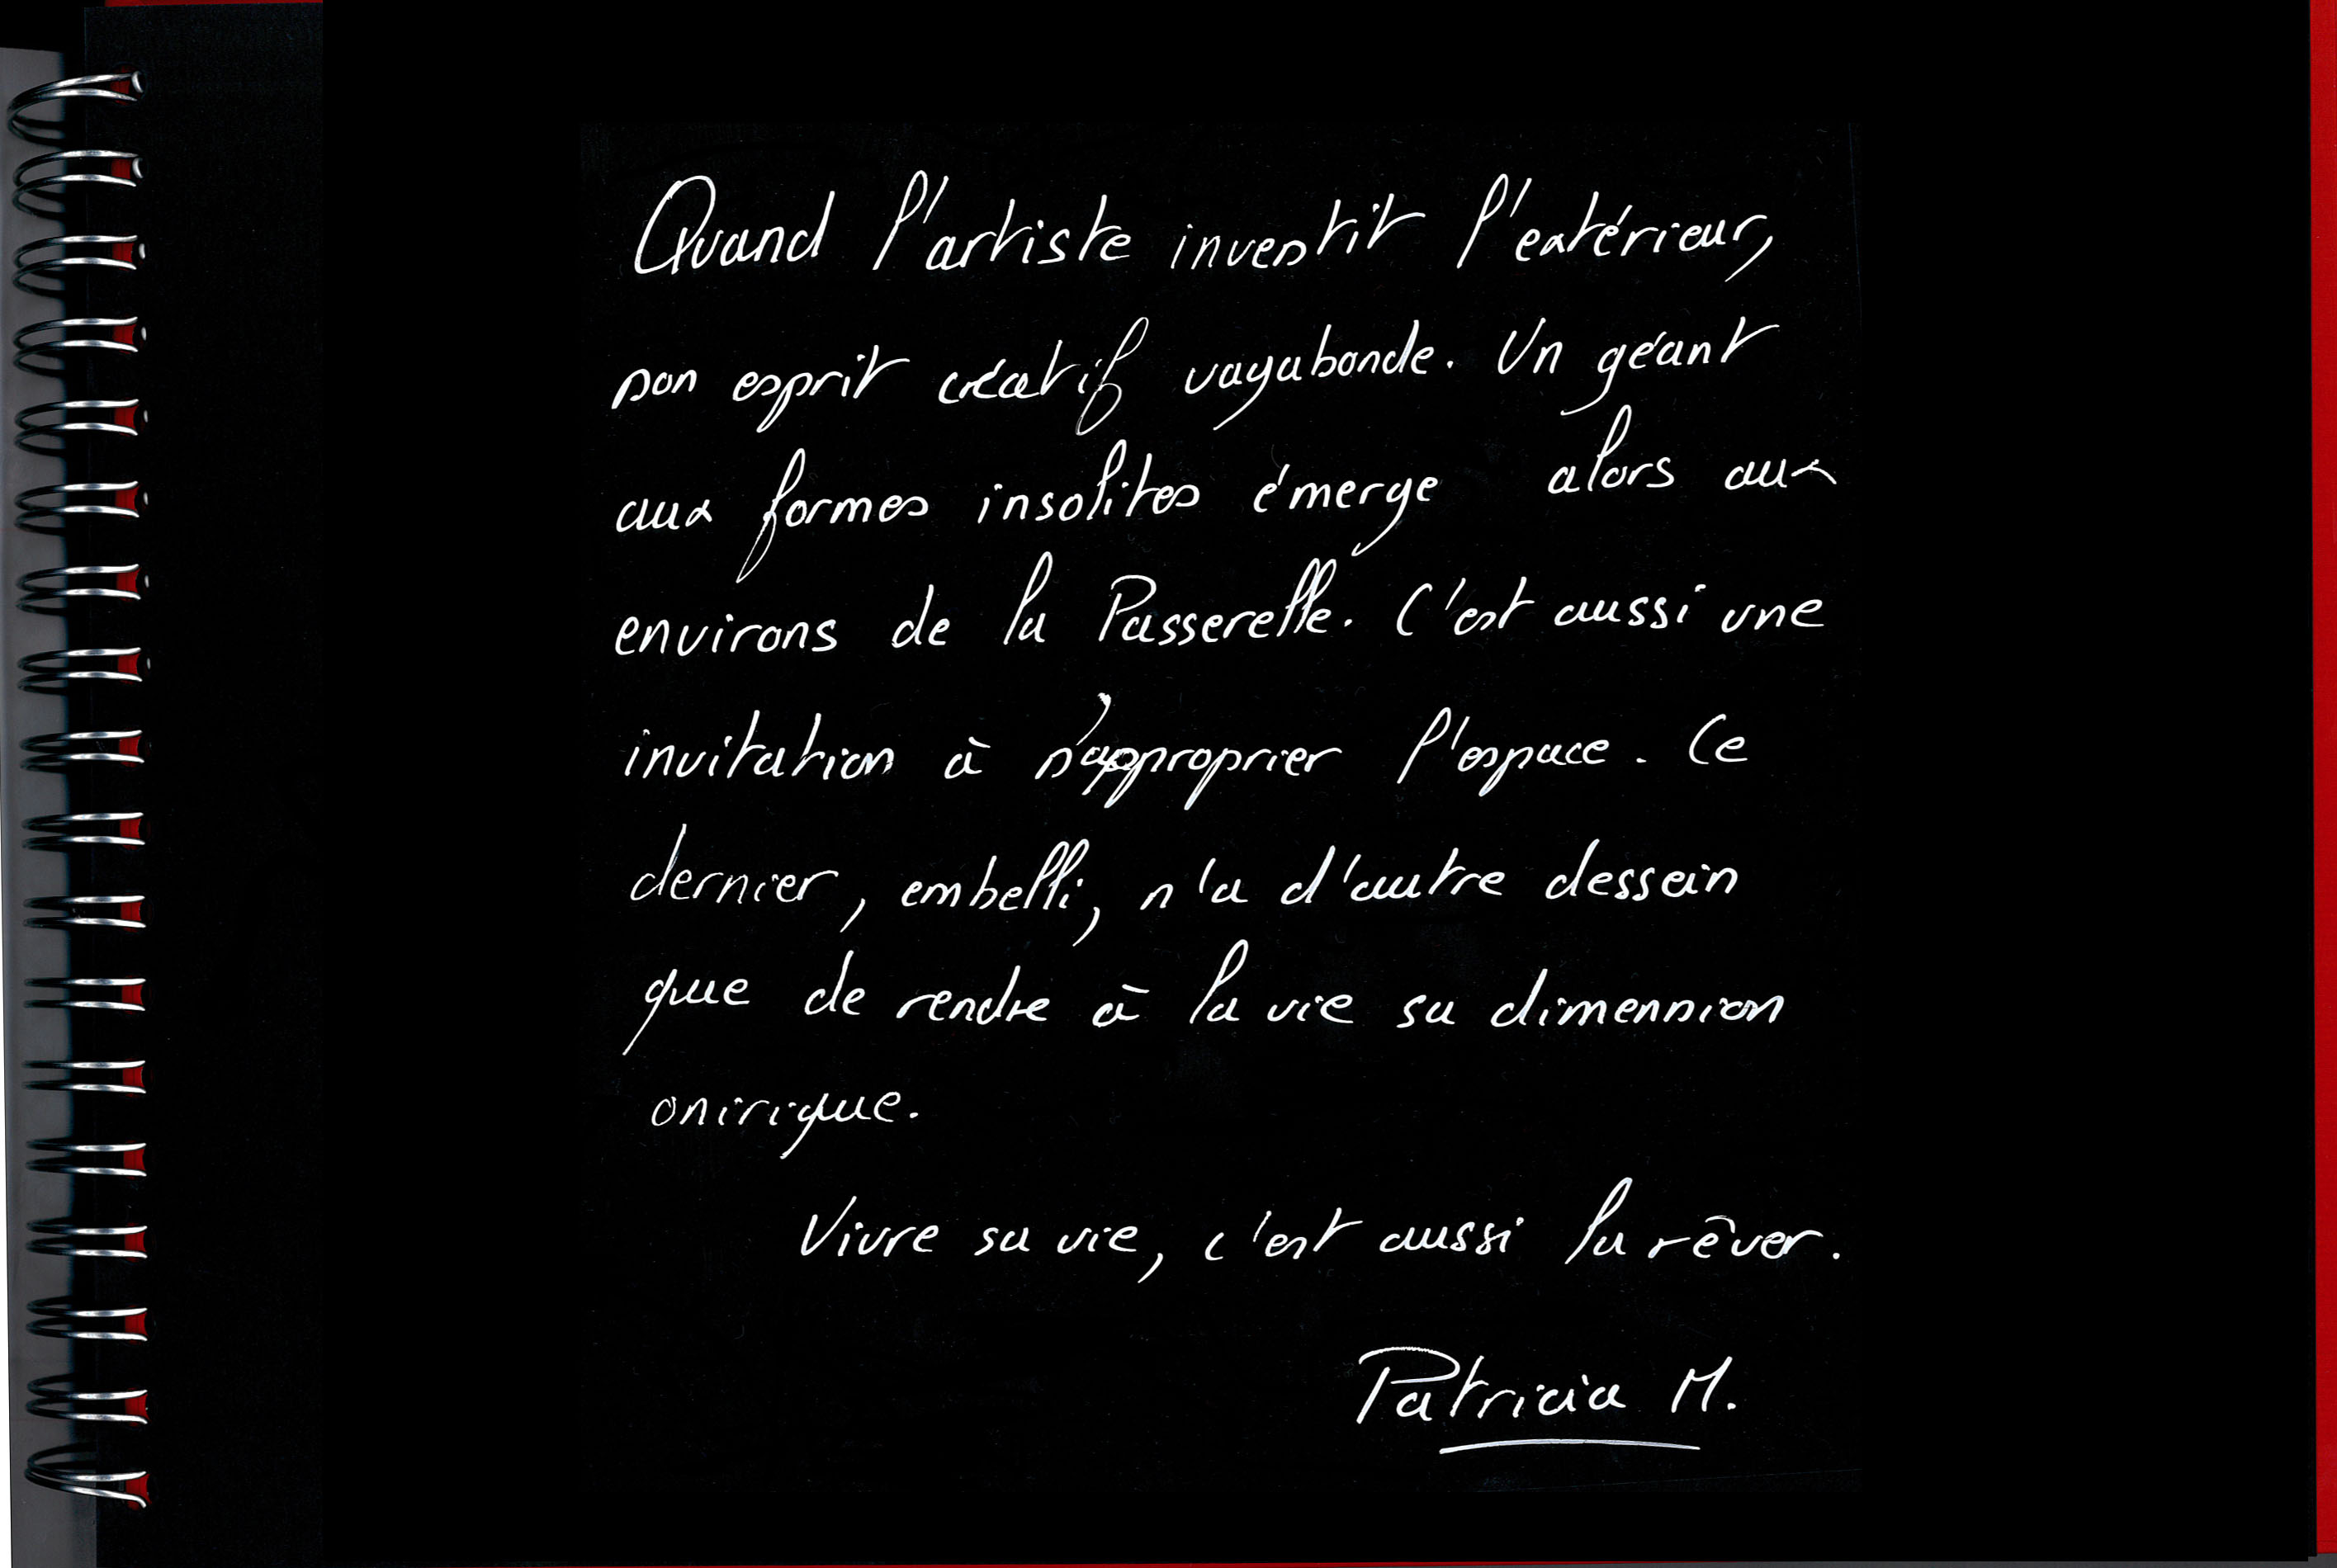 Quand l'artiste investit l'extérieur,
son esprit créatif vagabonde. Un géant
aux formes insolites émerge alors aux
environs de la Passerelle. C'est aussi une
invitation à s'approprier l'espace. Ce
dernier, embelli, n'a d'autre dessein
que de rendre à la vie sa dimension
onirique.
Vivre sa vie, c'est aussi la rêver.
Patricia M.